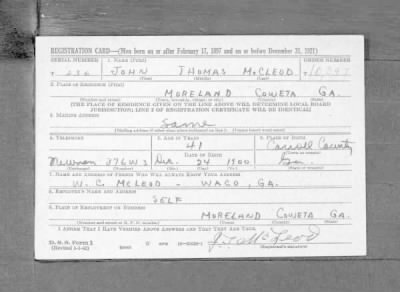 REGISTRATION CARD—(Men born on or after February 17, 1897 and on or before December 31, 1921)
SERIAL NUMBER 1. NAME (Print) ORDER NUMBER
T 236 JOHN THOMAS McLEOD 10,297
(First) (Middle) (Last)
2. PLACE OF RESIDENCE (Print)
MORELAND COWETA GA.
(Number and street) (Town, township, village, or city) (County) (State)
[THE PLACE OF RESIDENCE GIVEN ON THE LINE ABOVE WILL DETERMINE LOCAL BOARD
JURISDICTION; LINE 2 OF REGISTRATION CERTIFICATE WILL BE IDENTICAL]
3. MAILING ADDRESS
Same
[Mailing address if other than place indicated on line 2. If same insert word same]
4. TELEPHONE 5. AGE IN YEARS 6. PLACE OF BIRTH
41 Carroll County
DATE OF BIRTH (Town or county)
Newnan 276W3 Dec. 24 1900 Ga.
(Exchange) (Number) (Mo.) (Day) (Yr.) (State or country)
7. NAME AND ADDRESS OF PERSON WHO WILL ALWAYS KNOW YOUR ADDRESS
W. C. McLEOD - WACO, GA.
8. EMPLOYER'S NAME AND ADDRESS
SELF
9. PLACE OF EMPLOYMENT OR BUSINESS
MORELAND COWETA GA.
(Number and street or R. F. D. number) (Town) (County) (State)
I AFFIRM THAT I HAVE VERIFIED ABOVE ANSWERS AND THAT THEY ARE TRUE.
D. S. S. Form 1
(Revised 1-1-42) (over) 16—21630-1 J. T. McLeod
(Registrant's signature)